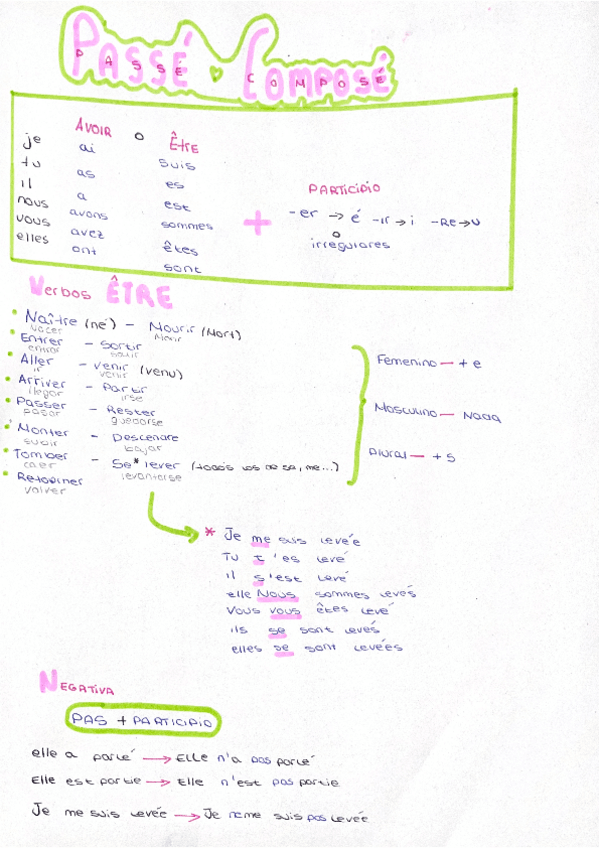 PASSÉ COMPOSÉ
AVOIR o Être
je ai suis
tu as es
il a est
nous avons sommes
vous avez êtes
elles ont sont
+
PARTICIPIO
-er → é -ir → i -Re → u
o
irregulares
Verbos ÊTRE
• Naître (né) - Mourir (Mort)
nacer morir
• Entrer - Sortir
entrar salir
• Aller - venir (venu)
ir venir
• Arriver - Partir
llegar irse
• Passer - Rester
pasar quedarse
• Monter - Descendre
subir bajar
• Tomber - Se* lever (todos los de se, me...)
caer levantarse
• Retourner
volver
Femenino — + e
Masculino — Nada
Plural — + s
* Je me suis levée
Tu t'es levé
il s'est levé
elle Nous sommes levés
Vous vous êtes levé
ils se sont levés
elles se sont levées
NEGATIVA
PAS + PARTICIPIO
elle a parlé → Elle n'a pas parlé
Elle est partie → Elle n'est pas partie
Je me suis levée → Je ne me suis pas levée